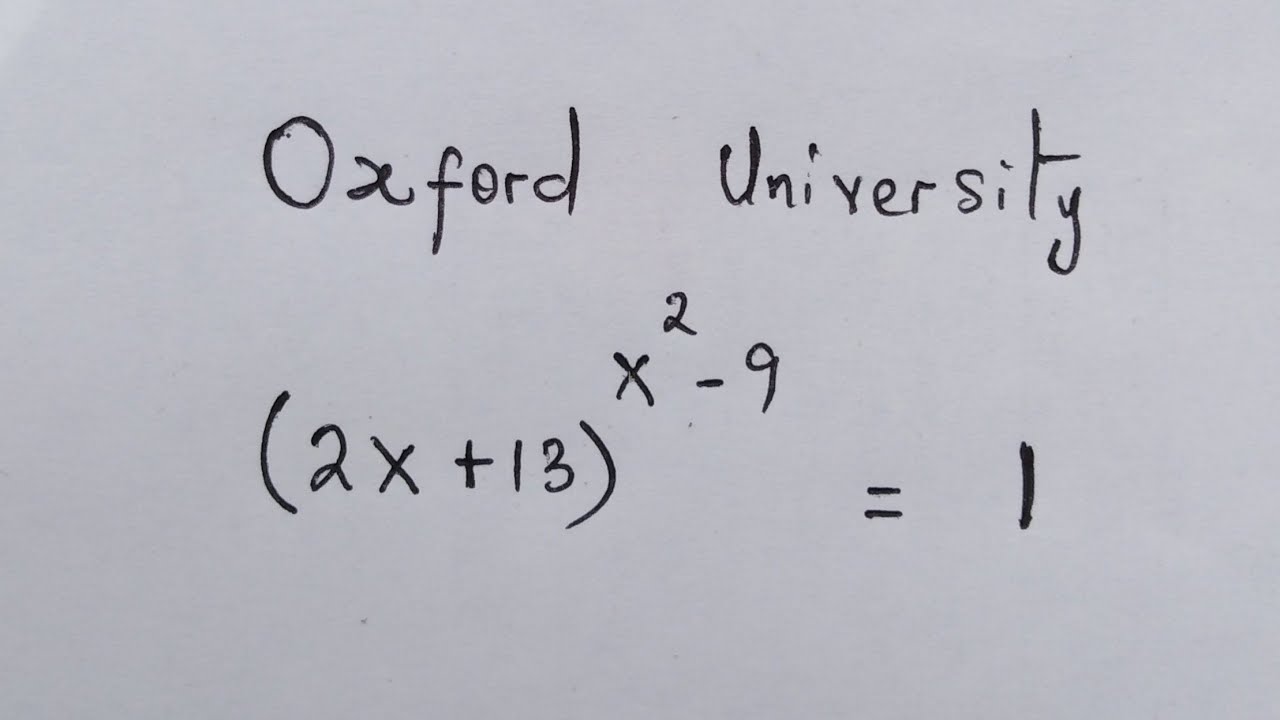 Oxford University
(2x+13)^{x^2-9} = 1